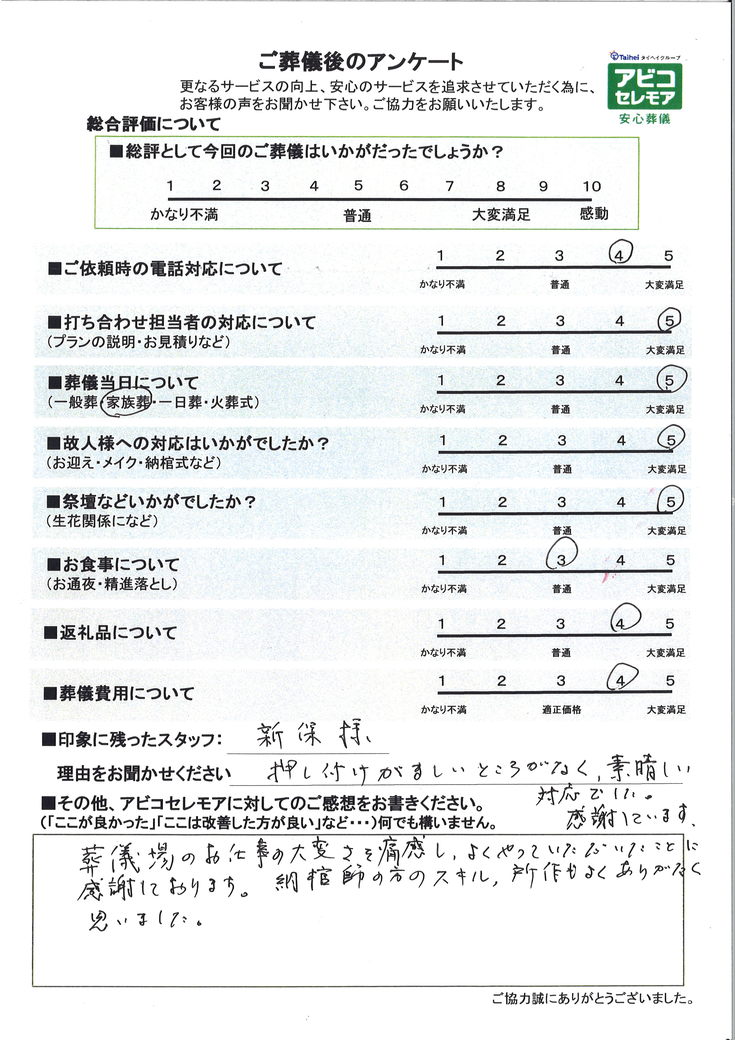 ご葬儀後のアンケート
Taihei タイヘイグループ
アビコ
セレモア
安心葬儀
更なるサービスの向上、安心のサービスを追求させていただく為に、
お客様の声をお聞かせ下さい。ご協力をお願いいたします。
総合評価について
■総評として今回のご葬儀はいかがだったでしょうか？
1 2 3 4 5 6 7 8 9 10
かなり不満 普通 大変満足 感動
■ご依頼時の電話対応について 1 2 3 4 5
かなり不満 普通 大変満足
■打ち合わせ担当者の対応について 1 2 3 4 5
(プランの説明・お見積りなど) かなり不満 普通 大変満足
■葬儀当日について 1 2 3 4 5
(一般葬・家族葬・一日葬・火葬式) かなり不満 普通 大変満足
■故人様への対応はいかがでしたか？ 1 2 3 4 5
(お迎え・メイク・納棺式など) かなり不満 普通 大変満足
■祭壇などいかがでしたか？ 1 2 3 4 5
(生花関係になど) かなり不満 普通 大変満足
■お食事について 1 2 3 4 5
(お通夜・精進落とし) かなり不満 普通 大変満足
■返礼品について 1 2 3 4 5
かなり不満 普通 大変満足
■葬儀費用について 1 2 3 4 5
かなり不満 適正価格 大変満足
■印象に残ったスタッフ： 新保様、
理由をお聞かせください 押し付けがましいところがなく、素晴しい
対応でした。
感謝しています、
■その他、アビコセレモアに対してのご感想をお書きください。
(｢ここが良かった｣｢ここは改善した方が良い｣など・・・)何でも構いません。
葬儀場のお仕事の大変さを痛感し、よくやっていただいたことに
感謝しております。納棺師の方のスキル、所作もよくありがたく
思いました。
ご協力誠にありがとうございました。